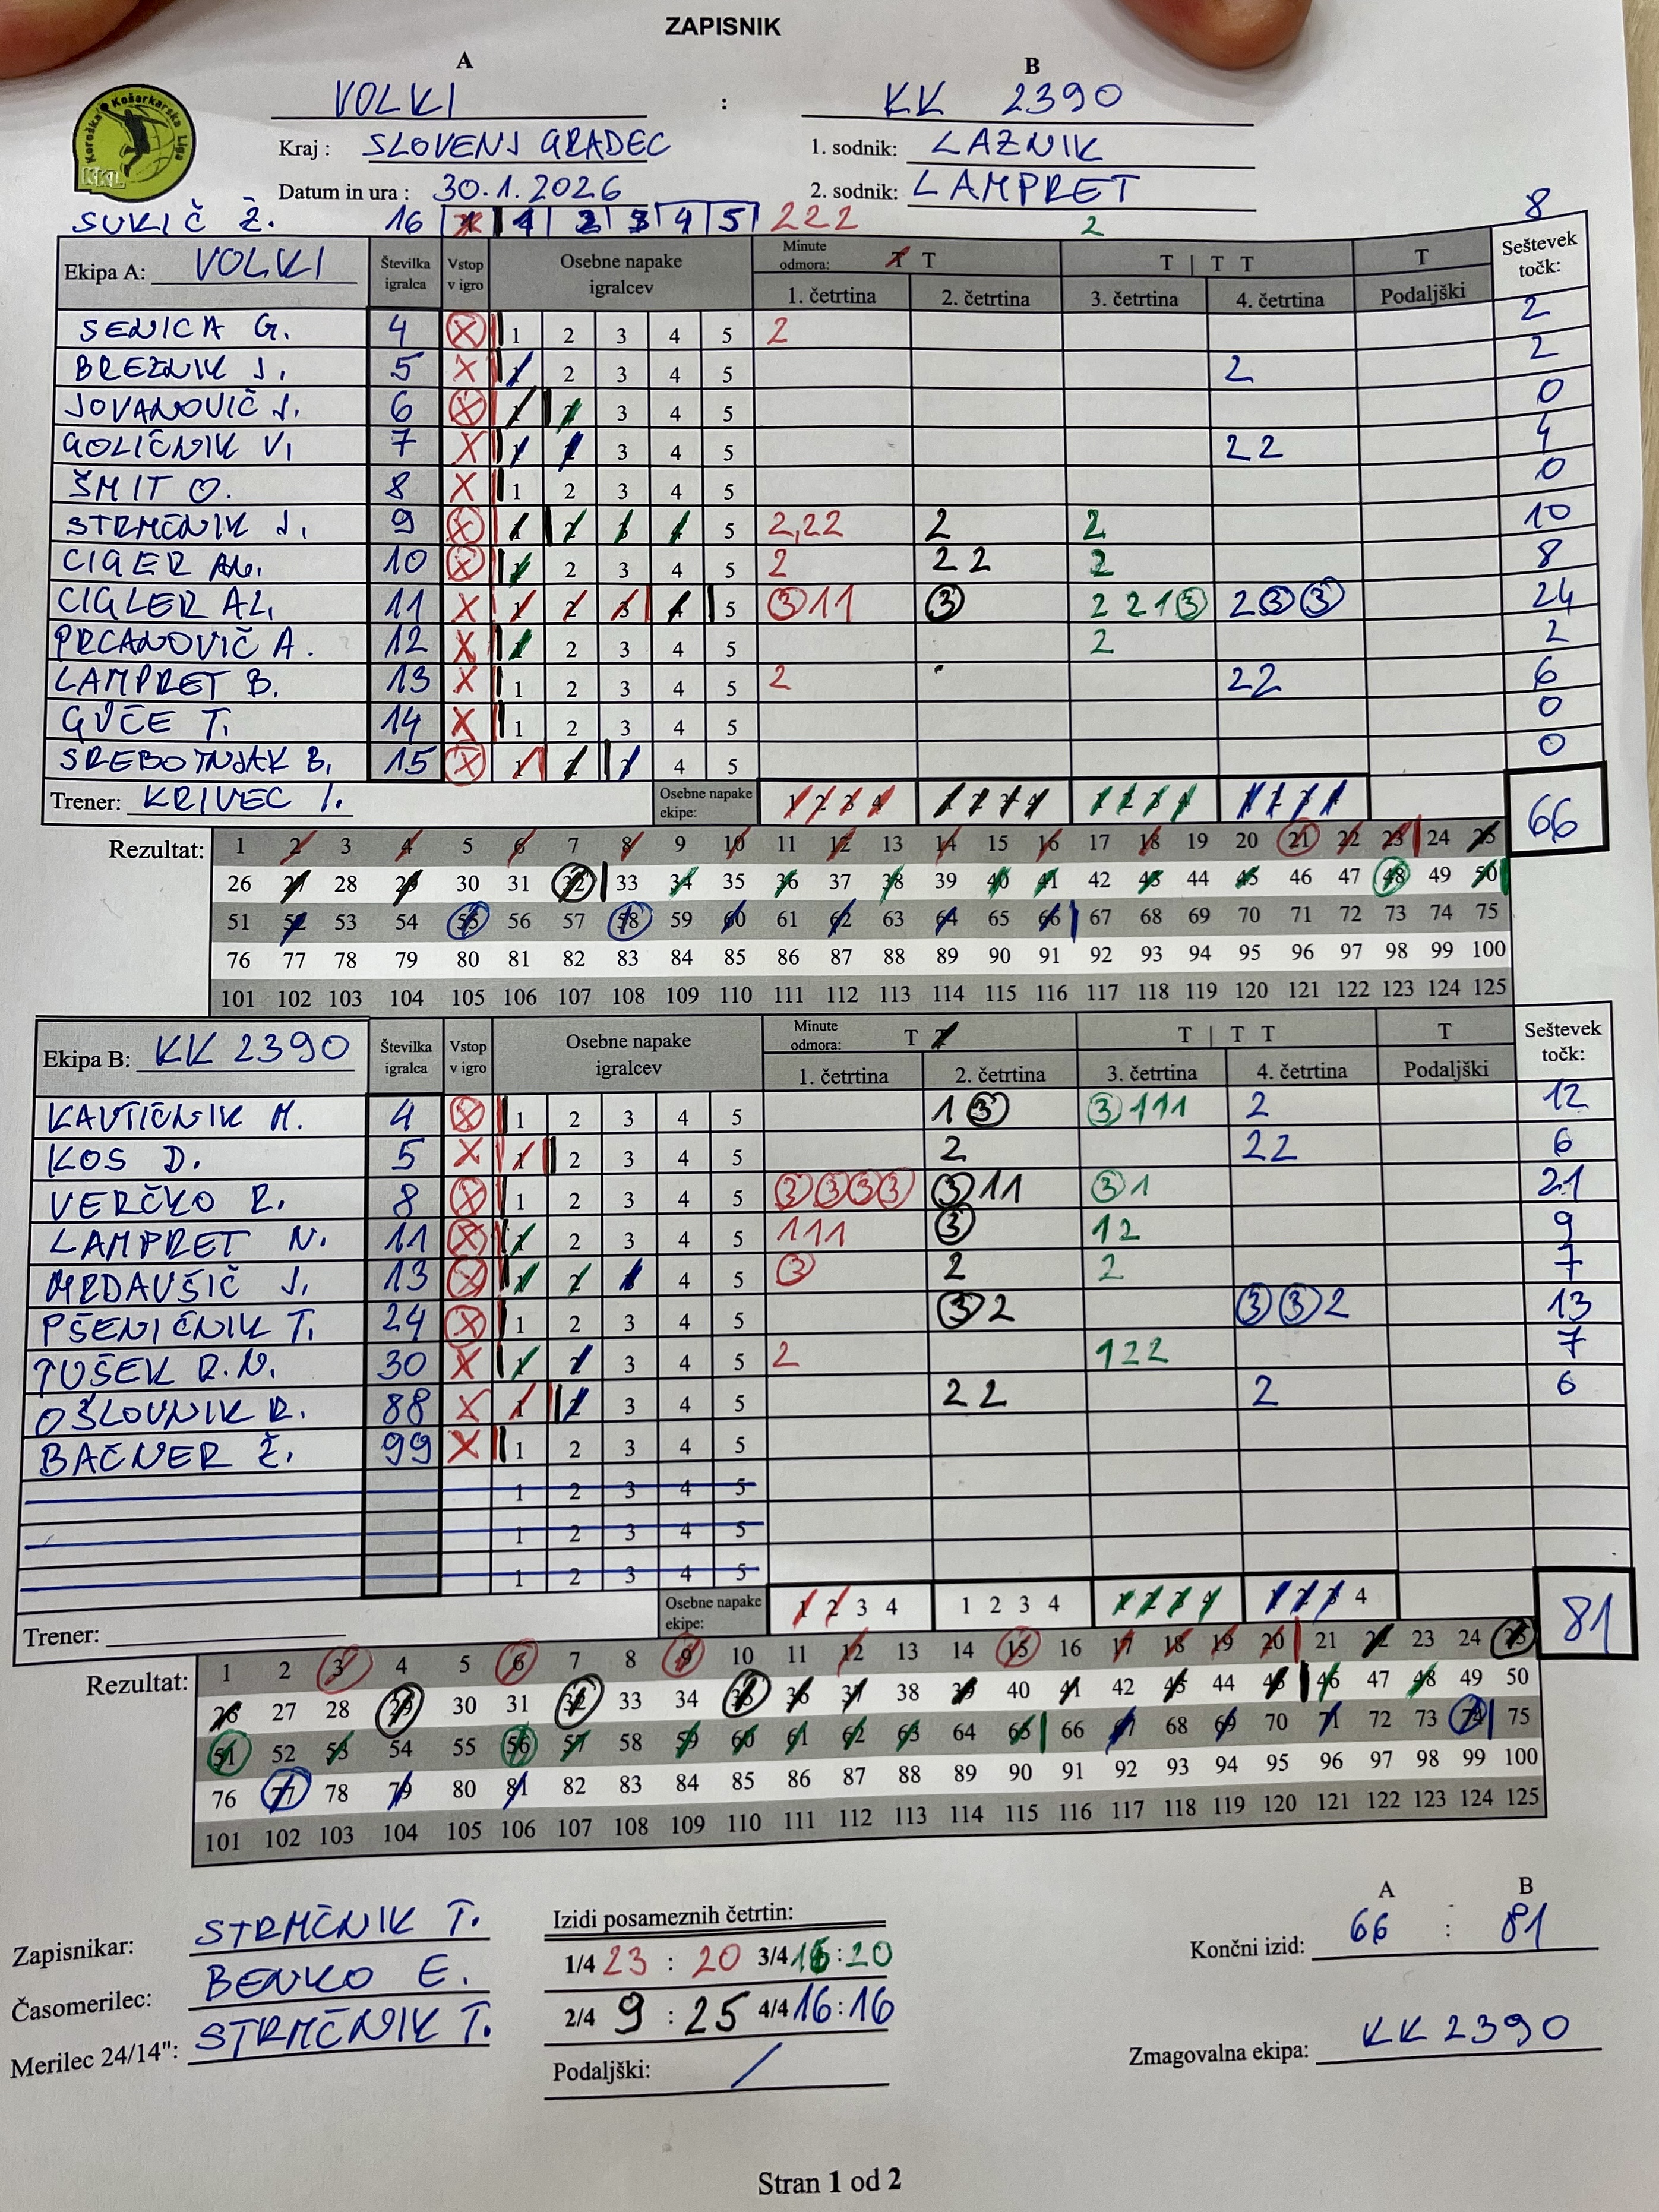 ZAPISNIK
A B
VOLKI : KK 2390
Koroška Košarkarska Liga
KKL
Kraj : SLOVENJ GRADEC 1. sodnik: LAZNIK
Datum in ura : 30.1.2026 2. sodnik: LAMPRET
SUKIČ Ž. 16 1 1 2 3 4 5 222 2 8
Ekipa A: VOLKI Številka igralca Vstop v igro Osebne napake igralcev Minute odmora: T T T | T T T Seštevek točk:
1. četrtina 2. četrtina 3. četrtina 4. četrtina Podaljški
SENICA G. 4 X 1 2 3 4 5 2 2
BREZNIK J. 5 X 1 2 3 4 5 2 2
JOVANOVIČ J. 6 X 1 2 3 4 5 0
GOLIČNIK V. 7 X 1 2 3 4 5 22 4
ŠMIT O. 8 X 1 2 3 4 5 0
STRMČNIK J. 9 X 1 2 3 4 5 2,22 2 2 10
CIGER AN. 10 X 1 2 3 4 5 2 2 2 2 8
CIGLER AL. 11 X 1 2 3 4 5 3 1 1 3 2 2 1 3 2 3 3 24
PRCANOVIČ A. 12 X 1 2 3 4 5 2 2
LAMPRET B. 13 X 1 2 3 4 5 2 22 6
GUČE T. 14 X 1 2 3 4 5 0
SREBOTNJAK B. 15 X 1 2 3 4 5 0
Trener: KRIVEC I. Osebne napake ekipe: 1 2 3 4 1 2 3 4 1 2 3 4 1 2 3 4 66
Rezultat: 1 2 3 4 5 6 7 8 9 10 11 12 13 14 15 16 17 18 19 20 21 22 23 24 25
26 27 28 29 30 31 32 33 34 35 36 37 38 39 40 41 42 43 44 45 46 47 48 49 50
51 52 53 54 55 56 57 58 59 60 61 62 63 64 65 66 67 68 69 70 71 72 73 74 75
76 77 78 79 80 81 82 83 84 85 86 87 88 89 90 91 92 93 94 95 96 97 98 99 100
101 102 103 104 105 106 107 108 109 110 111 112 113 114 115 116 117 118 119 120 121 122 123 124 125
Ekipa B: KK 2390 Številka igralca Vstop v igro Osebne napake igralcev Minute odmora: T T T | T T T Seštevek točk:
1. četrtina 2. četrtina 3. četrtina 4. četrtina Podaljški
KAUTIČNIK M. 4 X 1 2 3 4 5 1 3 3 1 1 1 2 12
KOS D. 5 X 1 2 3 4 5 2 22 6
VERČKO R. 8 X 1 2 3 4 5 3 3 3 3 3 1 1 3 1 21
LAMPRET N. 11 X 1 2 3 4 5 111 3 12 9
MRDAUŠIČ J. 13 X 1 2 3 4 5 3 2 2 7
PŠENIČNIK T. 24 X 1 2 3 4 5 3 2 3 3 2 13
TUŠEK R.N. 30 X 1 2 3 4 5 2 122 7
OŠLOVNIK R. 88 X 1 2 3 4 5 2 2 2 6
BAČNER Ž. 99 X 1 2 3 4 5
1 2 3 4 5
1 2 3 4 5
1 2 3 4 5
Trener: Osebne napake ekipe: 1 2 3 4 1 2 3 4 1 2 3 4 1 2 3 4 81
Rezultat: 1 2 3 4 5 6 7 8 9 10 11 12 13 14 15 16 17 18 19 20 21 22 23 24 25
26 27 28 29 30 31 32 33 34 35 36 37 38 39 40 41 42 43 44 45 46 47 48 49 50
51 52 53 54 55 56 57 58 59 60 61 62 63 64 65 66 67 68 69 70 71 72 73 74 75
76 77 78 79 80 81 82 83 84 85 86 87 88 89 90 91 92 93 94 95 96 97 98 99 100
101 102 103 104 105 106 107 108 109 110 111 112 113 114 115 116 117 118 119 120 121 122 123 124 125
Zapisnikar: STRMČNIK T.
Časomerilec: BENKO E.
Merilec 24/14": STRMČNIK T.
Izidi posameznih četrtin:
1/4 23 : 20 3/4 18 : 20
2/4 9 : 25 4/4 16 : 16
Podaljški: /
A B
Končni izid: 66 : 81
Zmagovalna ekipa: KK 2390
Stran 1 od 2